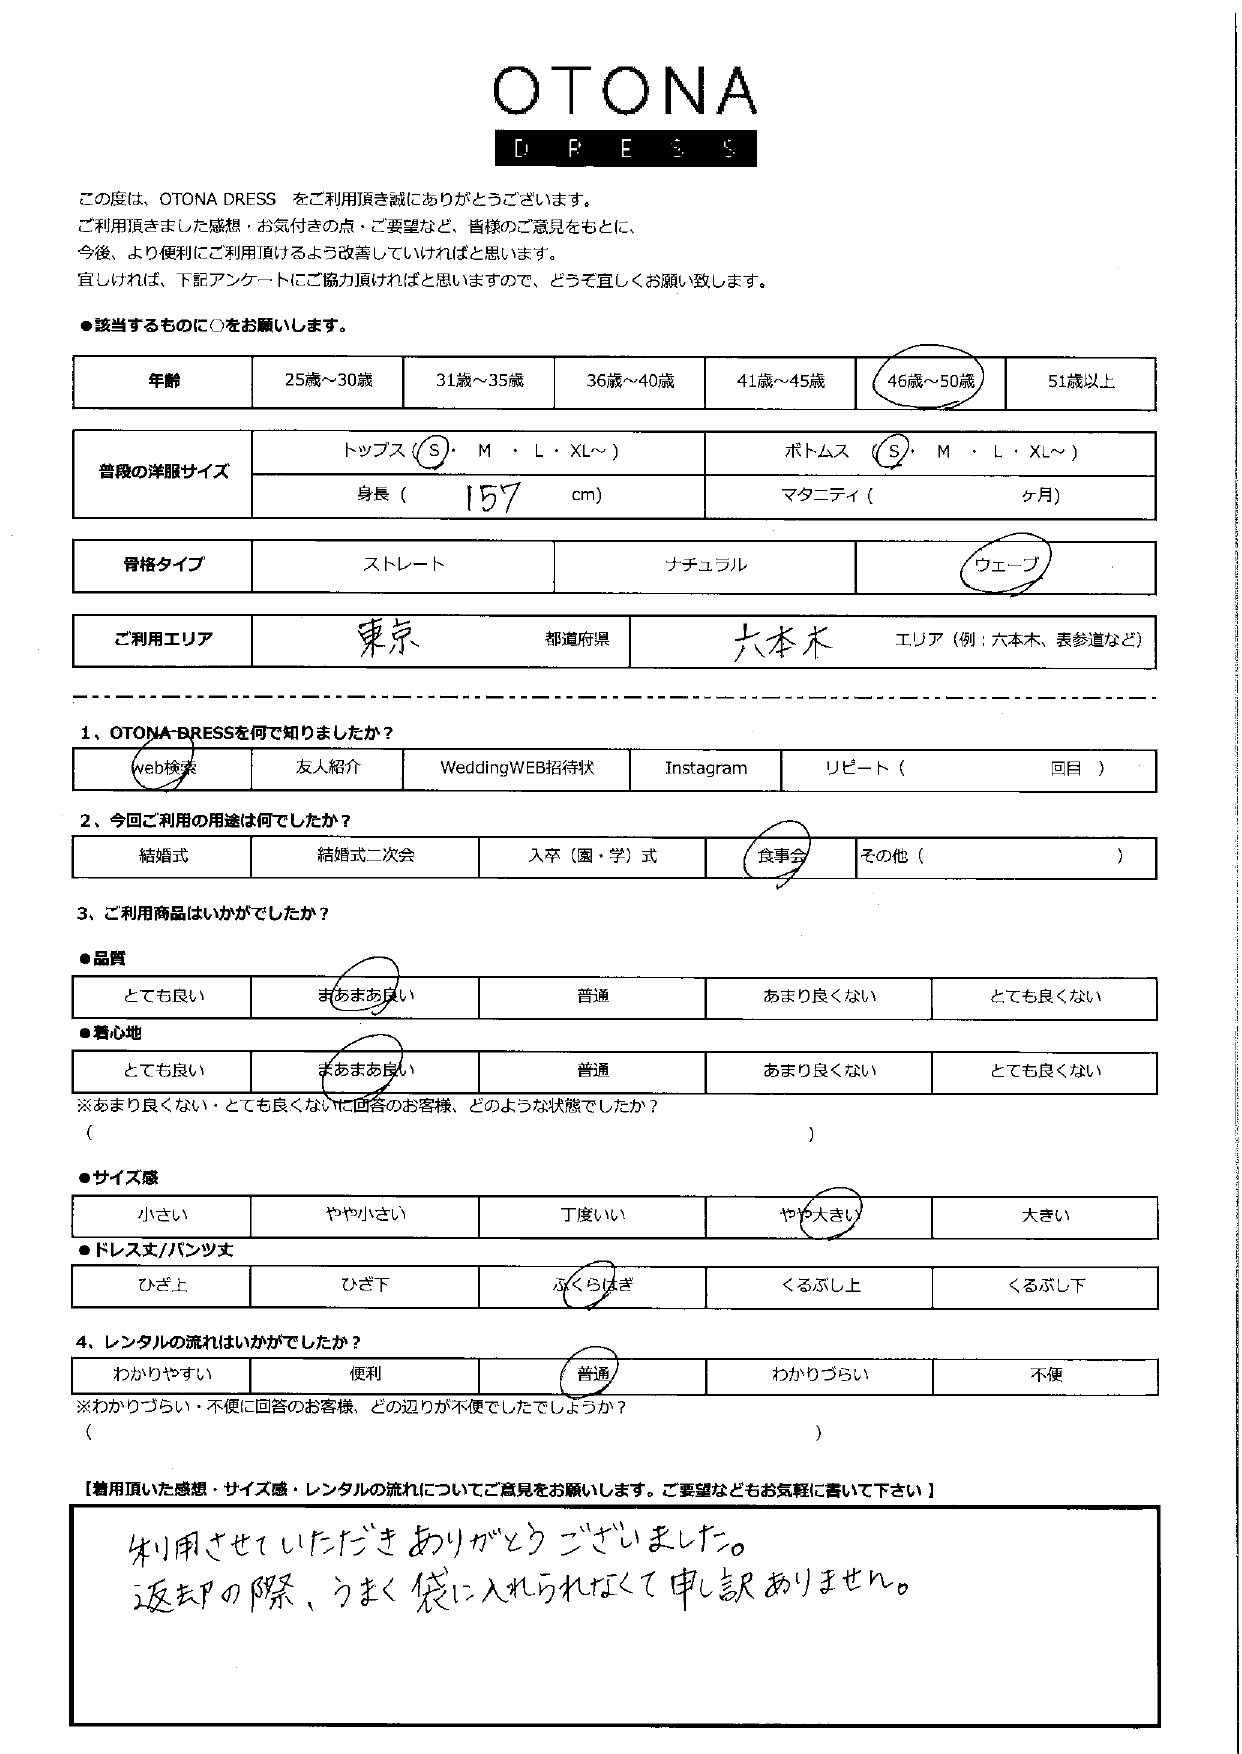 OTONA
DRESS
この度は、OTONA DRESS　をご利用頂き誠にありがとうございます。
ご利用頂きました感想・お気付きの点・ご要望など、皆様のご意見をもとに、
今後、より便利にご利用頂けるよう改善していければと思います。
宜しければ、下記アンケートにご協力頂ければと思いますので、どうぞ宜しくお願い致します。
●該当するものに○をお願いします。
年齢 25歳～30歳 31歳～35歳 36歳～40歳 41歳～45歳 46歳～50歳 51歳以上
普段の洋服サイズ トップス ( S ・ M ・ L ・ XL～ ) ボトムス ( S ・ M ・ L ・ XL～ )
身長 ( 157 cm) マタニティ ( ヶ月)
骨格タイプ ストレート ナチュラル ウェーブ
ご利用エリア 東京 都道府県 六本木 エリア（例：六本木、表参道など）
1、OTONA DRESSを何で知りましたか？
web検索 友人紹介 WeddingWEB招待状 Instagram リピート ( 回目 )
2、今回ご利用の用途は何でしたか？
結婚式 結婚式二次会 入卒（園・学）式 食事会 その他 ( )
3、ご利用商品はいかがでしたか？
●品質
とても良い まあまあ良い 普通 あまり良くない とても良くない
●着心地
とても良い まあまあ良い 普通 あまり良くない とても良くない
※あまり良くない・とても良くないに回答のお客様、どのような状態でしたか？
( )
●サイズ感
小さい やや小さい 丁度いい やや大きい 大きい
●ドレス丈/パンツ丈
ひざ上 ひざ下 ふくらはぎ くるぶし上 くるぶし下
4、レンタルの流れはいかがでしたか？
わかりやすい 便利 普通 わかりづらい 不便
※わかりづらい・不便に回答のお客様、どの辺りが不便でしたでしょうか？
( )
【着用頂いた感想・サイズ感・レンタルの流れについてご意見をお願いします。ご要望などもお気軽に書いて下さい】
利用させていただきありがとうございました。
返却の際、うまく袋に入れられなくて申し訳ありません。